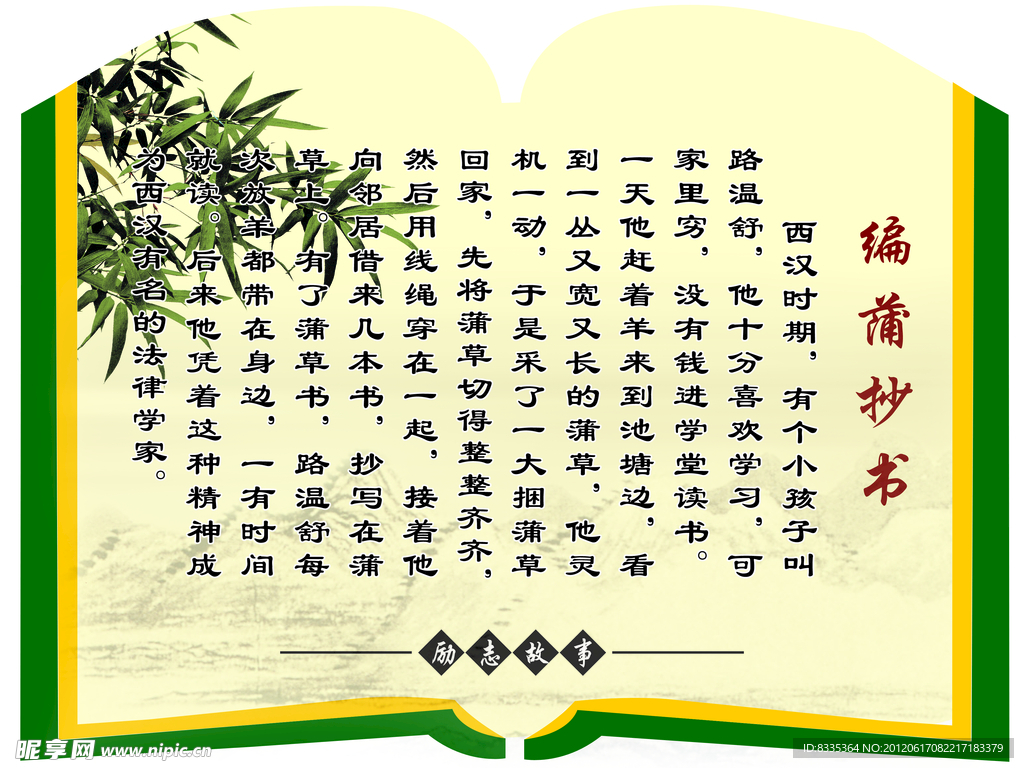 编蒲抄书
西汉时期，有个小孩子叫
路温舒，他十分喜欢学习，可
家里穷，没有钱进学堂读书。
一天他赶着羊来到池塘边，看
到一丛又宽又长的蒲草，他灵
机一动，于是采了一大捆蒲草
回家，先将蒲草切得整整齐齐，
然后用线绳穿在一起，接着他
向邻居借来几本书，抄写在蒲
草上。有了蒲草书，路温舒每
次放羊都带在身边，一有时间
就读。后来他凭着这种精神成
为西汉有名的法律学家。
励志故事
昵享网 www.nipic.cn
ID:8335364 NO:20120617082217183379